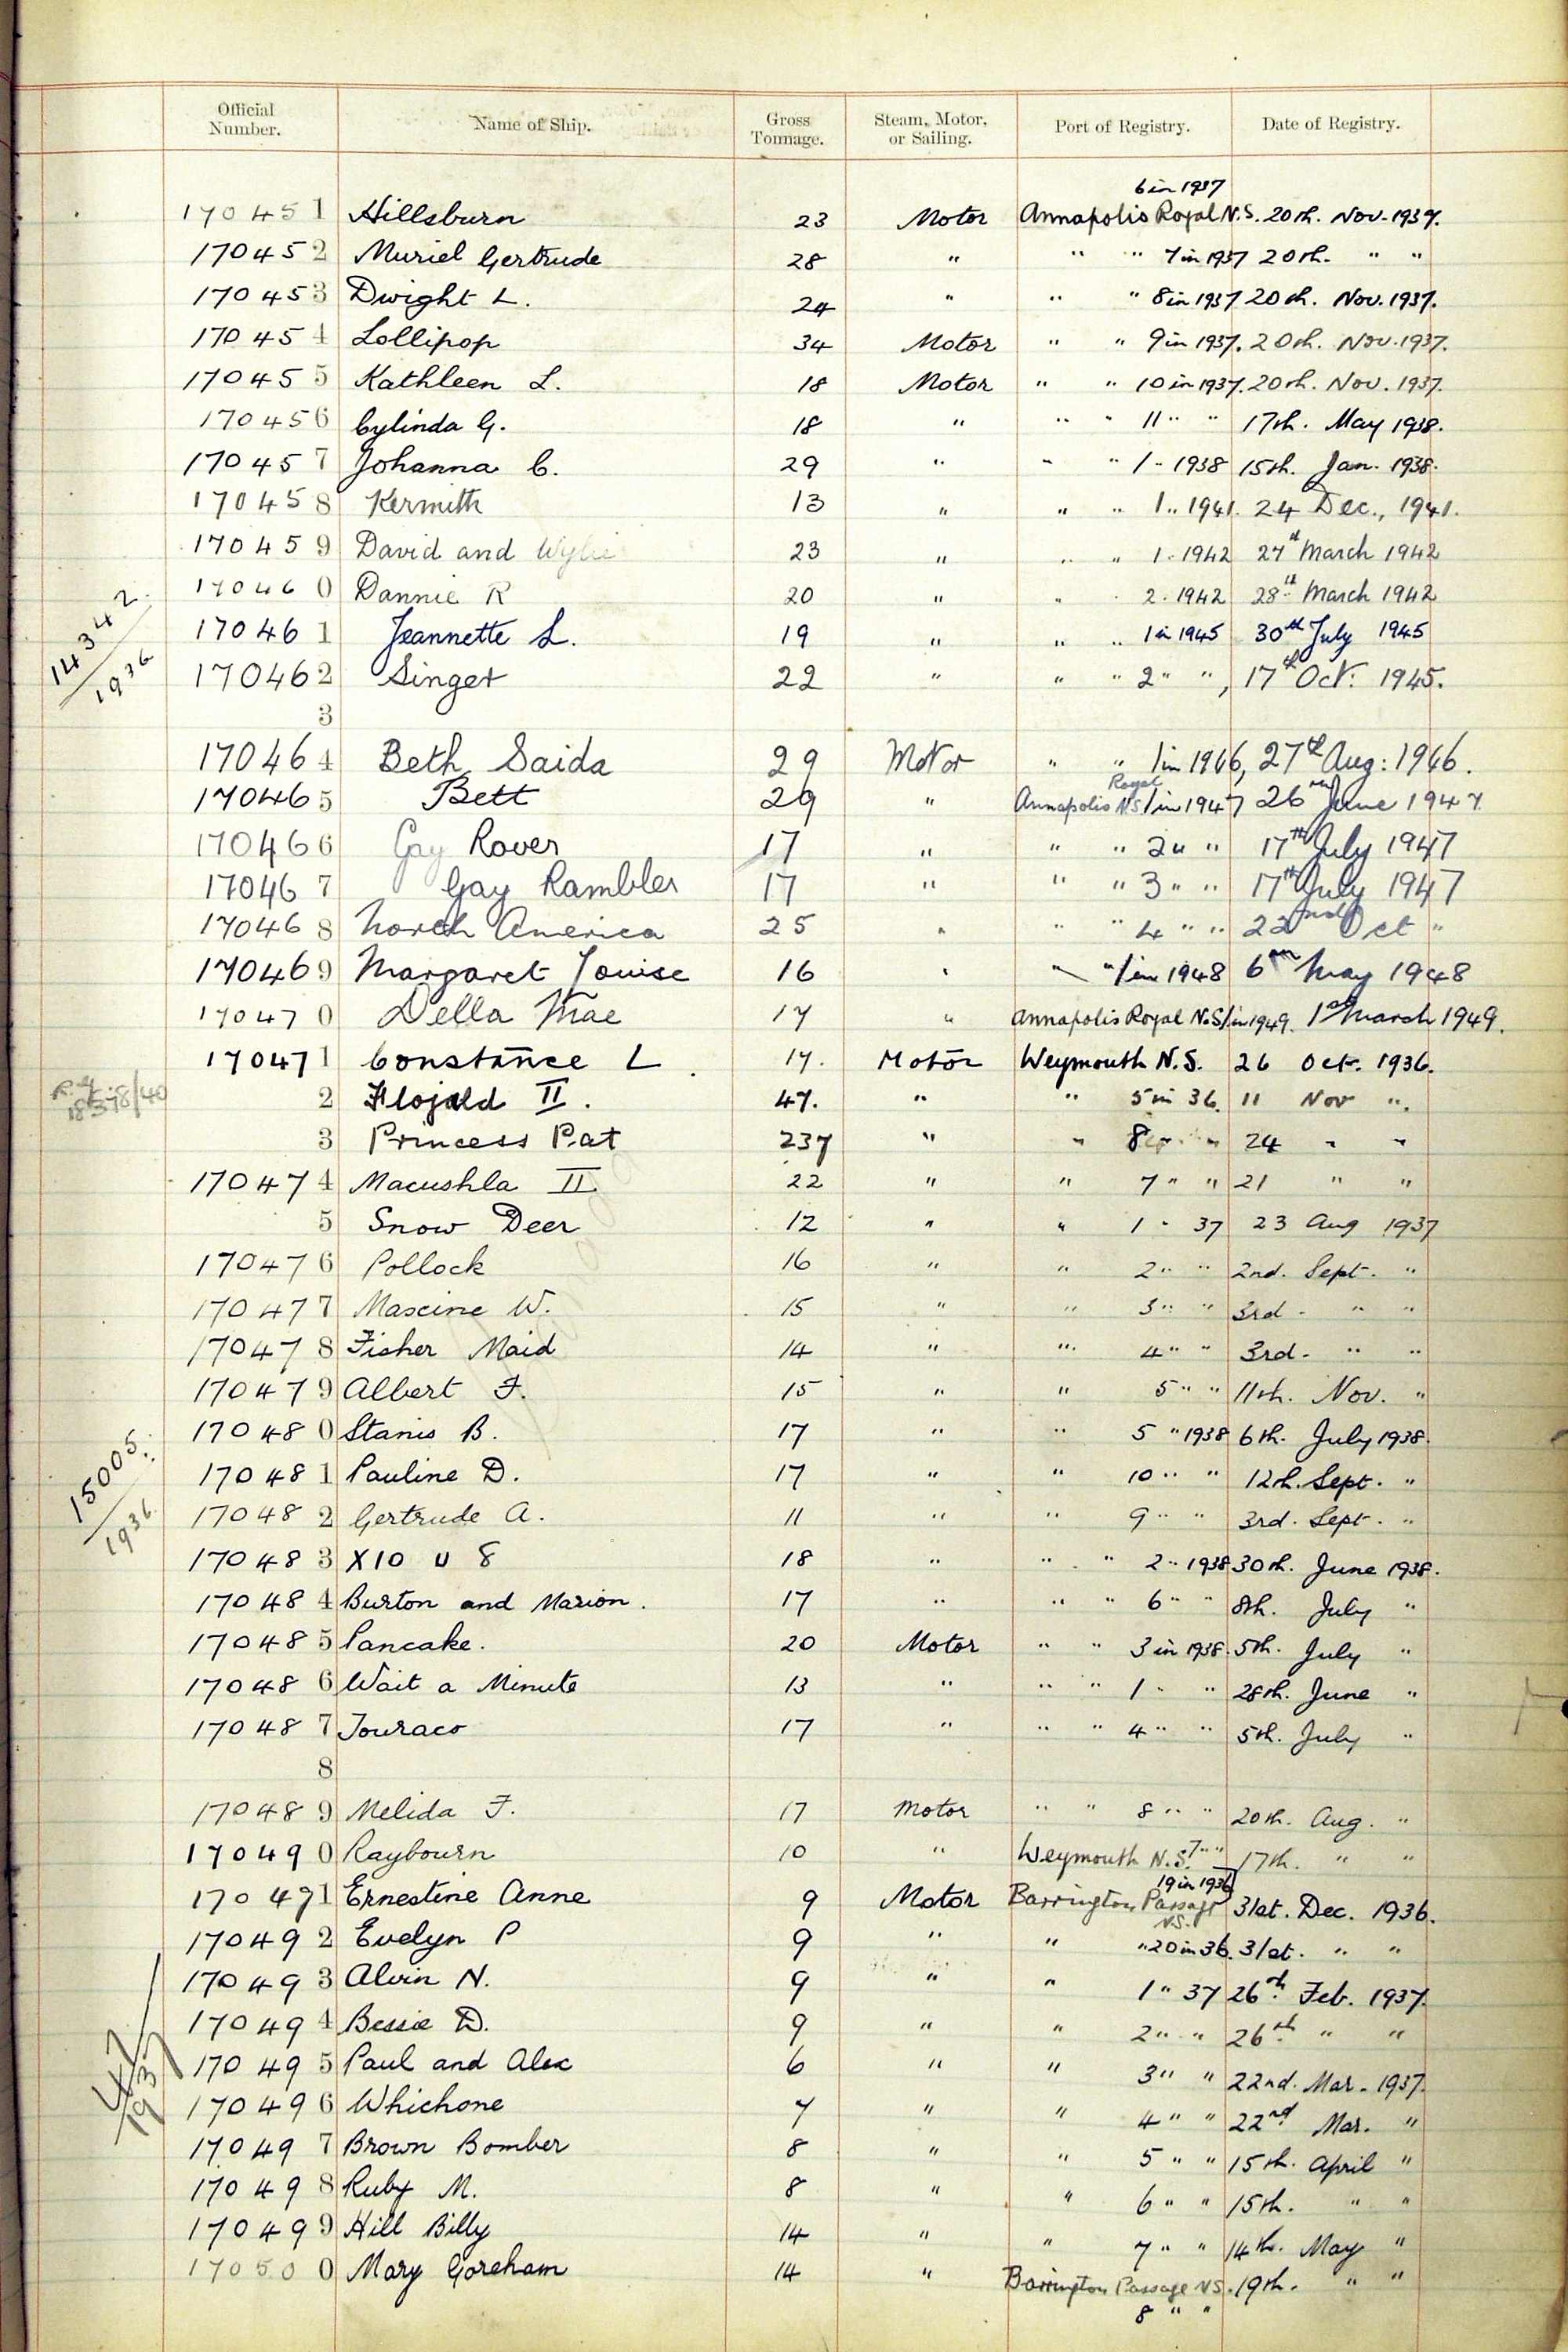 Official Number. Name of Ship. Gross Tonnage. Steam, Motor, or Sailing. Port of Registry. Date of Registry.
6 in 1937
170451 Hillsburn 23 Motor Annapolis Royal N.S. 20th. Nov. 1937.
170452 Muriel Gertrude 28 " " " 7 in 1937 20th. " "
170453 Dwight L. 24 " " " 8 in 1937 20th. Nov. 1937.
170454 Lollipop 34 Motor " " 9 in 1937. 20th. Nov. 1937.
170455 Kathleen L. 18 Motor " " 10 in 1937. 20th. Nov. 1937.
170456 Cylinda G. 18 " " " 11 " " 17th. May 1938.
170457 Johanna C. 29 " " " 1 " 1938 15th. Jan. 1938.
170458 Kermith 13 " " " 1 " 1941. 24 Dec., 1941.
170459 David and Wylie 23 " " " 1 " 1942 27th March 1942
170460 Dannie R 20 " " " 2 " 1942 28th March 1942
14342/1936
170461 Jeannette L. 19 " " " 1 in 1945 30th July 1945
170462 Singer 22 " " " 2 " ", 17th Oct: 1945.
3
170464 Beth Saida 29 Motor " " 1 in 1946, 27th Aug: 1946.
170465 Bett 29 " Annapolis Royal N.S. 1 in 1947 26th June 1947
170466 Gay Rover 17 " " " 2 " " 17th July 1947
170467 Gay Rambler 17 " " " 3 " " 17th July 1947
170468 North America 25 " " " 4 " " 22nd Oct "
170469 Margaret Louise 16 " " " 1 in 1948 6th May 1948
170470 Della Mae 17 " Annapolis Royal N.S. 1 in 1949. 1st March 1949.
170471 Constance L. 17. Motor Weymouth N.S. 26 Oct. 1936.
2 Flojald II. 47. " " 5 in 36. 11 Nov ".
3 Princess Pat 237 " " 8 " " 24 " "
170474 Macushla II 22 " " 7 " " 21 " "
5 Snow Deer 12 " " 1 " 37 23 Aug 1937
170476 Pollock 16 " " 2 " " 2nd. Sept. "
170477 Maxine W. 15 " " 3 " " 3rd " " "
170478 Fisher Maid 14 " " 4 " " 3rd. " "
170479 Albert F. 15 " " 5 " " 11th. Nov. "
170480 Stanis B. 17 " " 5 " 1938 6th. July 1938.
170481 Pauline D. 17 " " 10 " " 12th. Sept. "
15005/1936
170482 Gertrude A. 11 " " 9 " " 3rd. Sept. "
170483 X10 U 8 18 " " " 2 " 1938 30th. June 1938.
170484 Burton and Marion. 17 " " " 6 " " 8th. July "
170485 Pancake. 20 Motor " " 3 in 1938. 5th. July "
170486 Wait a Minute 13 " " " 1 " " 28th. June "
170487 Touraco 17 " " " 4 " " 5th. July "
8
170489 Melida F. 17 Motor " " 8 " " 20th. Aug. "
170490 Raybourn 10 " Weymouth N.S. 7 " " 17th. " "
19 in 1936
170491 Ernestine Anne 9 Motor Barrington Passage N.S. 31st. Dec. 1936.
170492 Evelyn P 9 " " " 20 in 36. 31st. " "
170493 Alvin N. 9 " " 1 " 37 26th. Feb. 1937.
170494 Bessie D. 9 " " 2 " " 26th " "
47/1937
170495 Paul and Alex 6 " " 3 " " 22nd. Mar. 1937.
170496 Whichone 7 " " 4 " " 22nd Mar. "
170497 Brown Bomber 8 " " 5 " " 15th. April "
170498 Ruby M. 8 " " 6 " " 15th. " "
170499 Hill Billy 14 " " 7 " " 14th. May "
170500 Mary Goreham 14 " Barrington Passage N.S. 19th. " "
8 " "